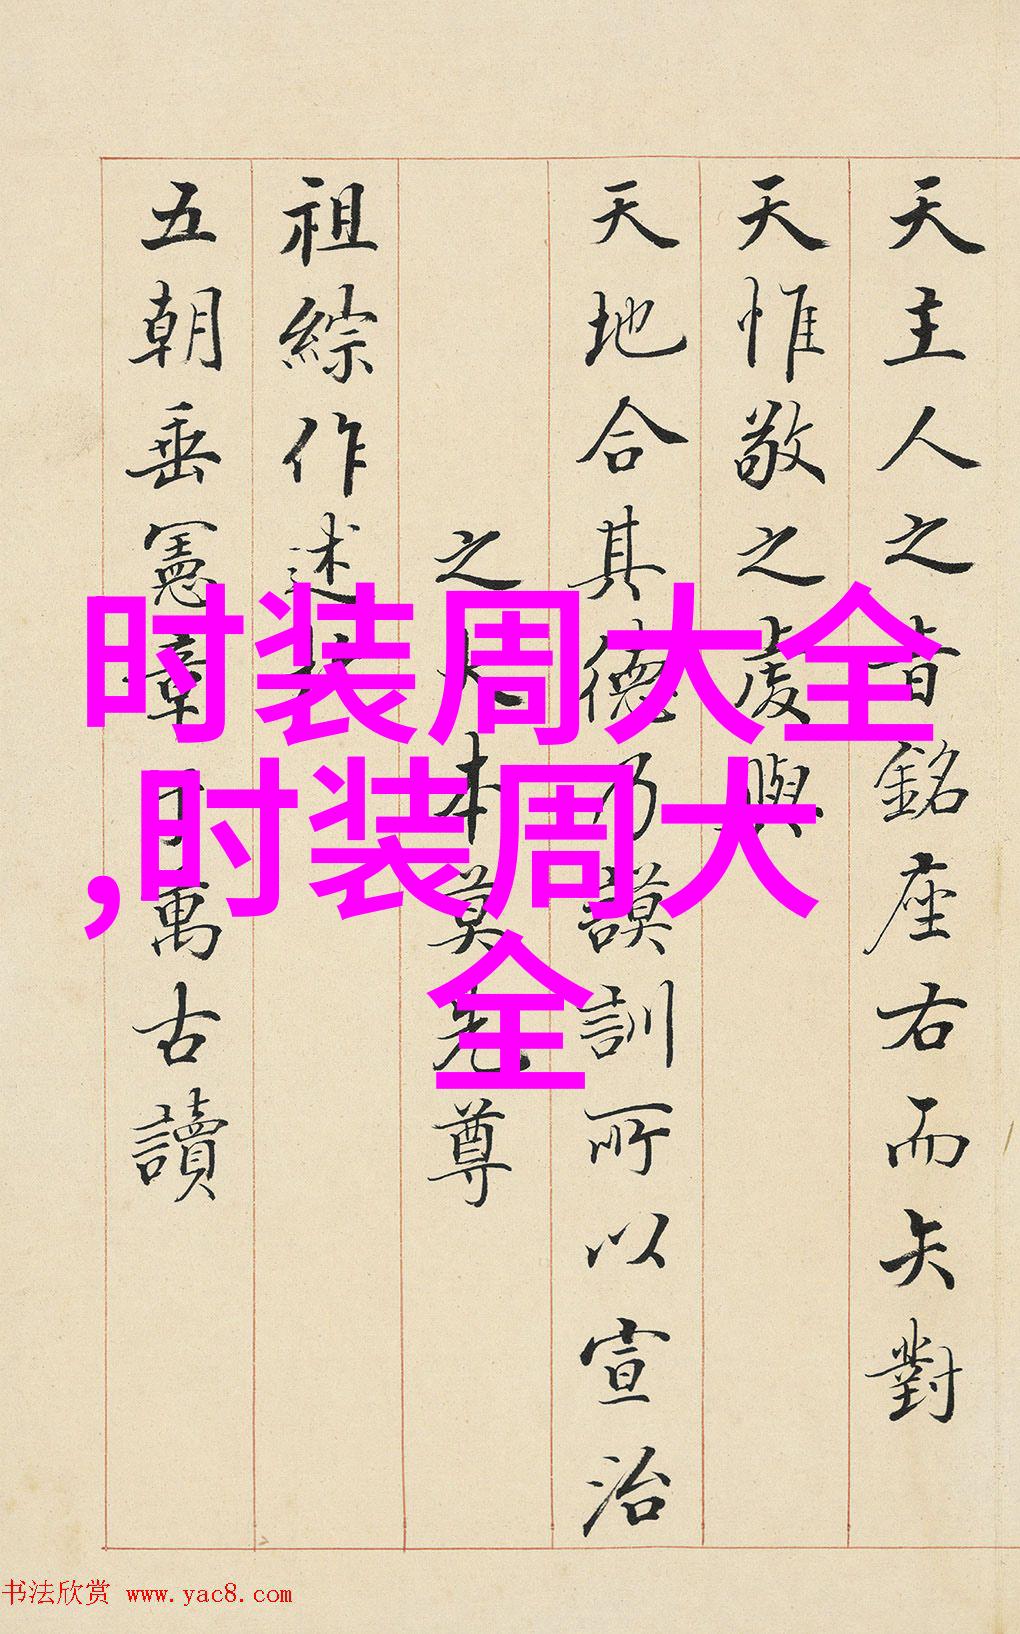 天主人之旨銘座右而矢對
天惟敬之處與
天地合其德乃謨訓所以宣治
之大本莫先尊
祖綜作述
五朝垂憲章于萬古讀
时装周大全
,时装周大
全
书法欣赏 www.yac8.com